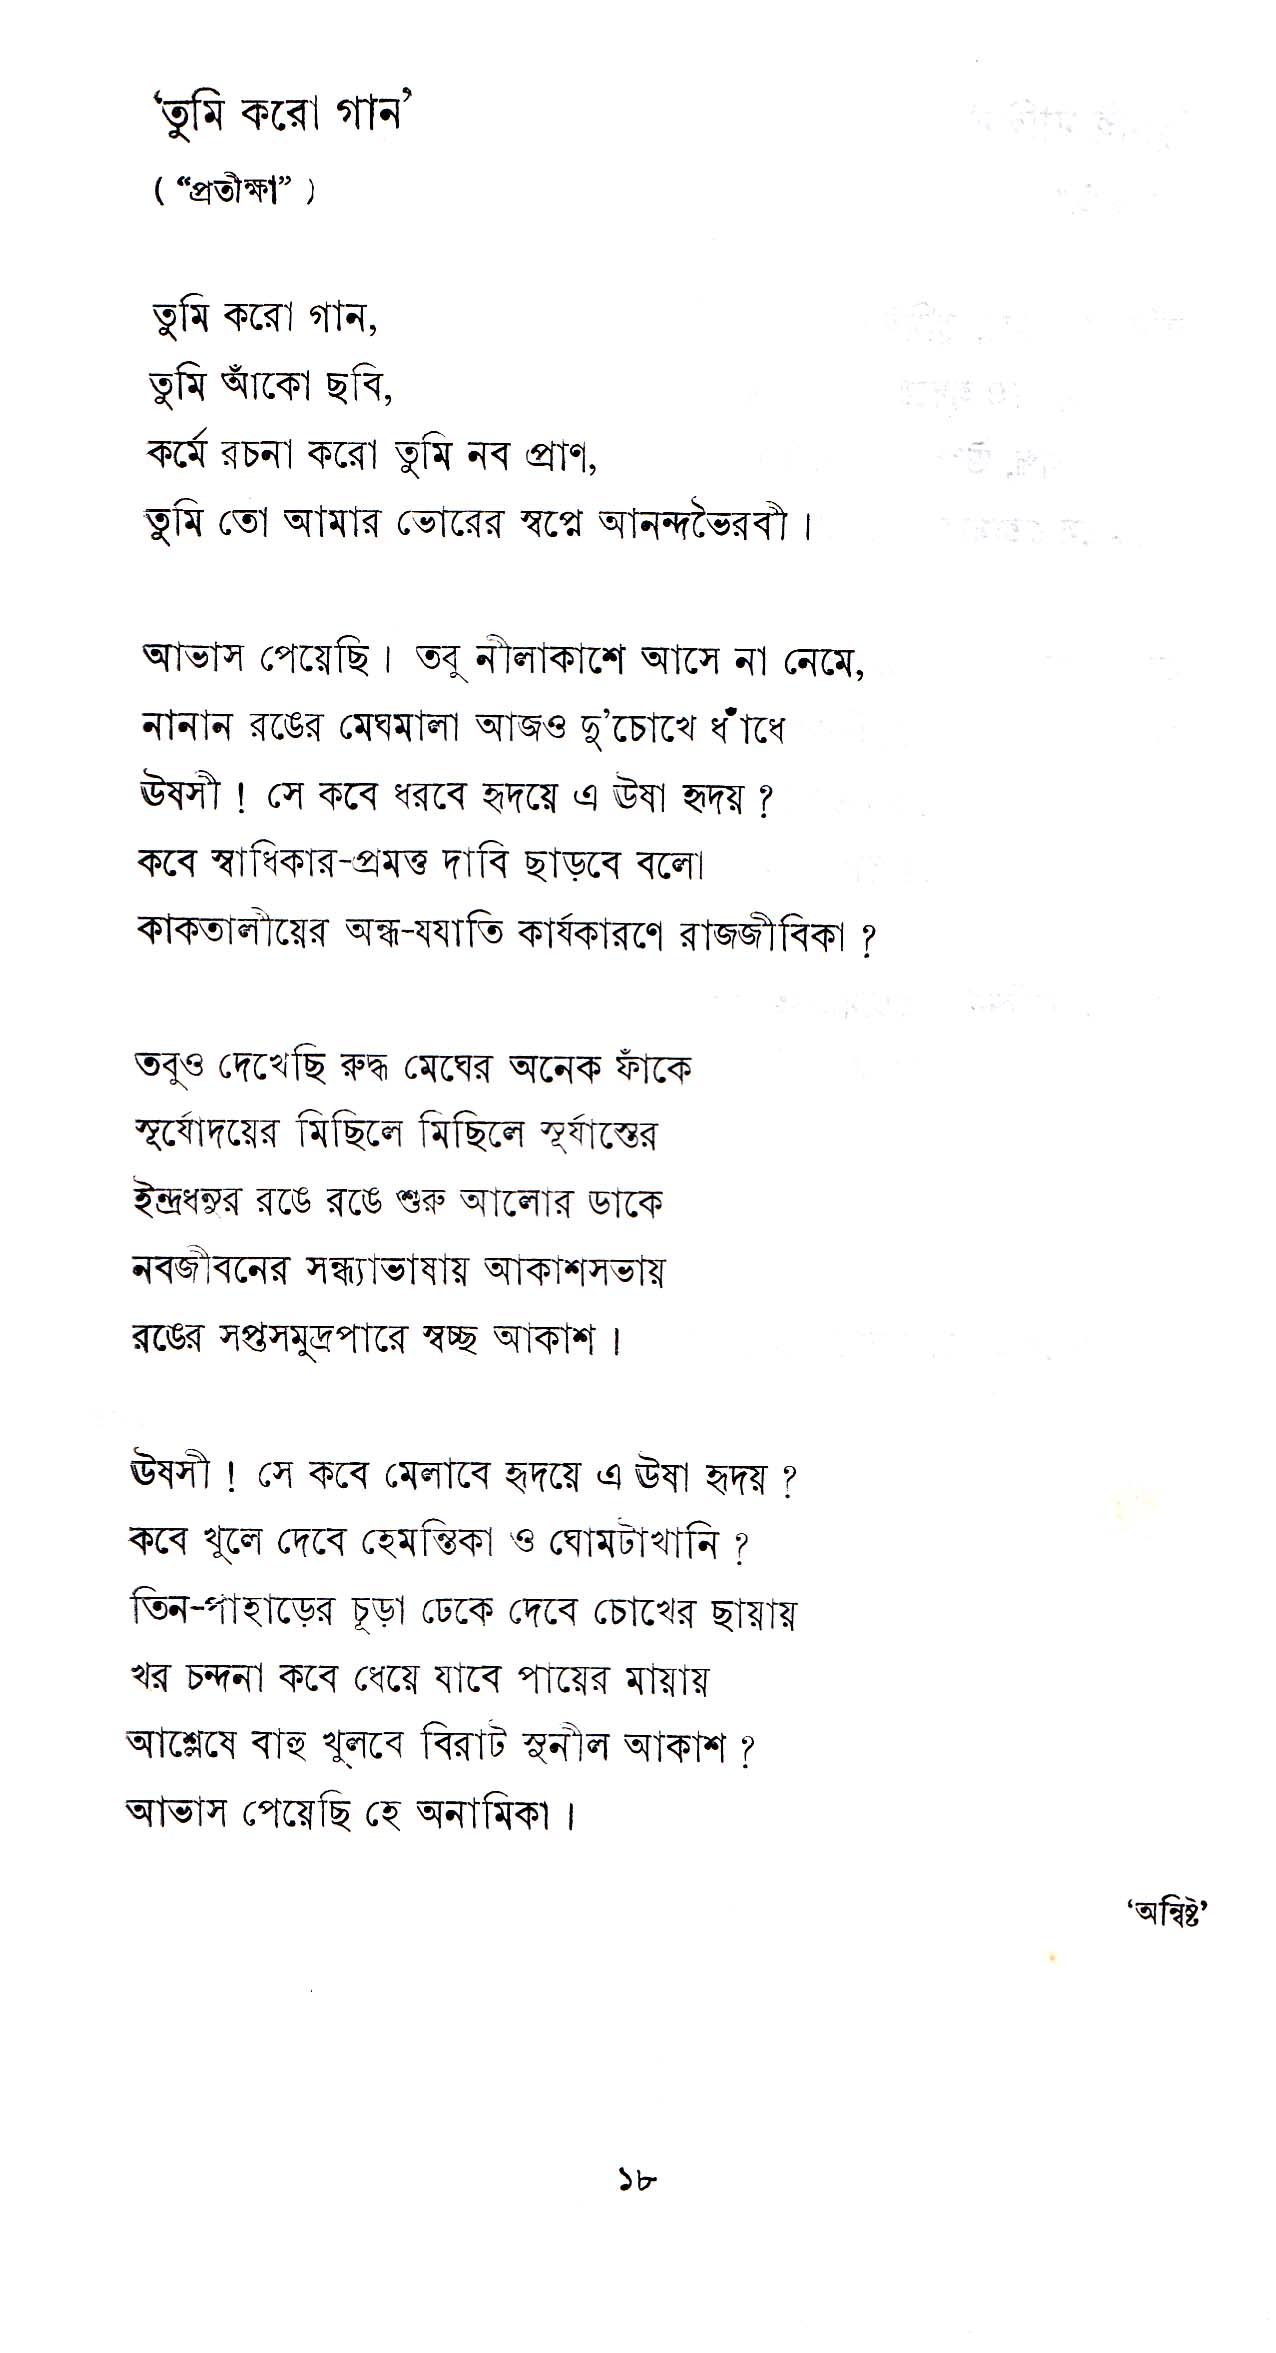 ‘তুমি করো গান’
( “প্রতীক্ষা” )
তুমি করো গান,
তুমি আঁকো ছবি,
কর্মে রচনা করো তুমি নব প্রাণ,
তুমি তো আমার ভোরের স্বপ্নে আনন্দভৈরবী।
আভাস পেয়েছি। তবু নীলাকাশে আসে না নেমে,
নানান রঙের মেঘমালা আজও দু’চোখে ধাঁধে
ঊষসী ! সে কবে ধরবে হৃদয়ে এ ঊষা হৃদয় ?
কবে স্বাধিকার-প্রমত্ত দাবি ছাড়বে বলো
কাকতালীয়ের অন্ধ-যযাতি কার্যকারণে রাজজীবিকা ?
তবুও দেখেছি রুদ্ধ মেঘের অনেক ফাঁকে
সূর্যোদয়ের মিছিলে মিছিলে সূর্যাস্তের
ইন্দ্রধনুর রঙে রঙে শুরু আলোর ডাকে
নবজীবনের সন্ধ্যাভাষায় আকাশসভায়
রঙের সপ্তসমুদ্রপারে স্বচ্ছ আকাশ।
ঊষসী ! সে কবে মেলাবে হৃদয়ে এ ঊষা হৃদয় ?
কবে খুলে দেবে হেমন্তিকা ও ঘোমটাখানি ?
তিন-পাহাড়ের চূড়া ঢেকে দেবে চোখের ছায়ায়
খর চন্দনা কবে ধেয়ে যাবে পায়ের মায়ায়
আশ্লেষে বাহু খুলবে বিরাট সুনীল আকাশ ?
আভাস পেয়েছি হে অনামিকা।
‘অন্বিষ্ট’
১৮